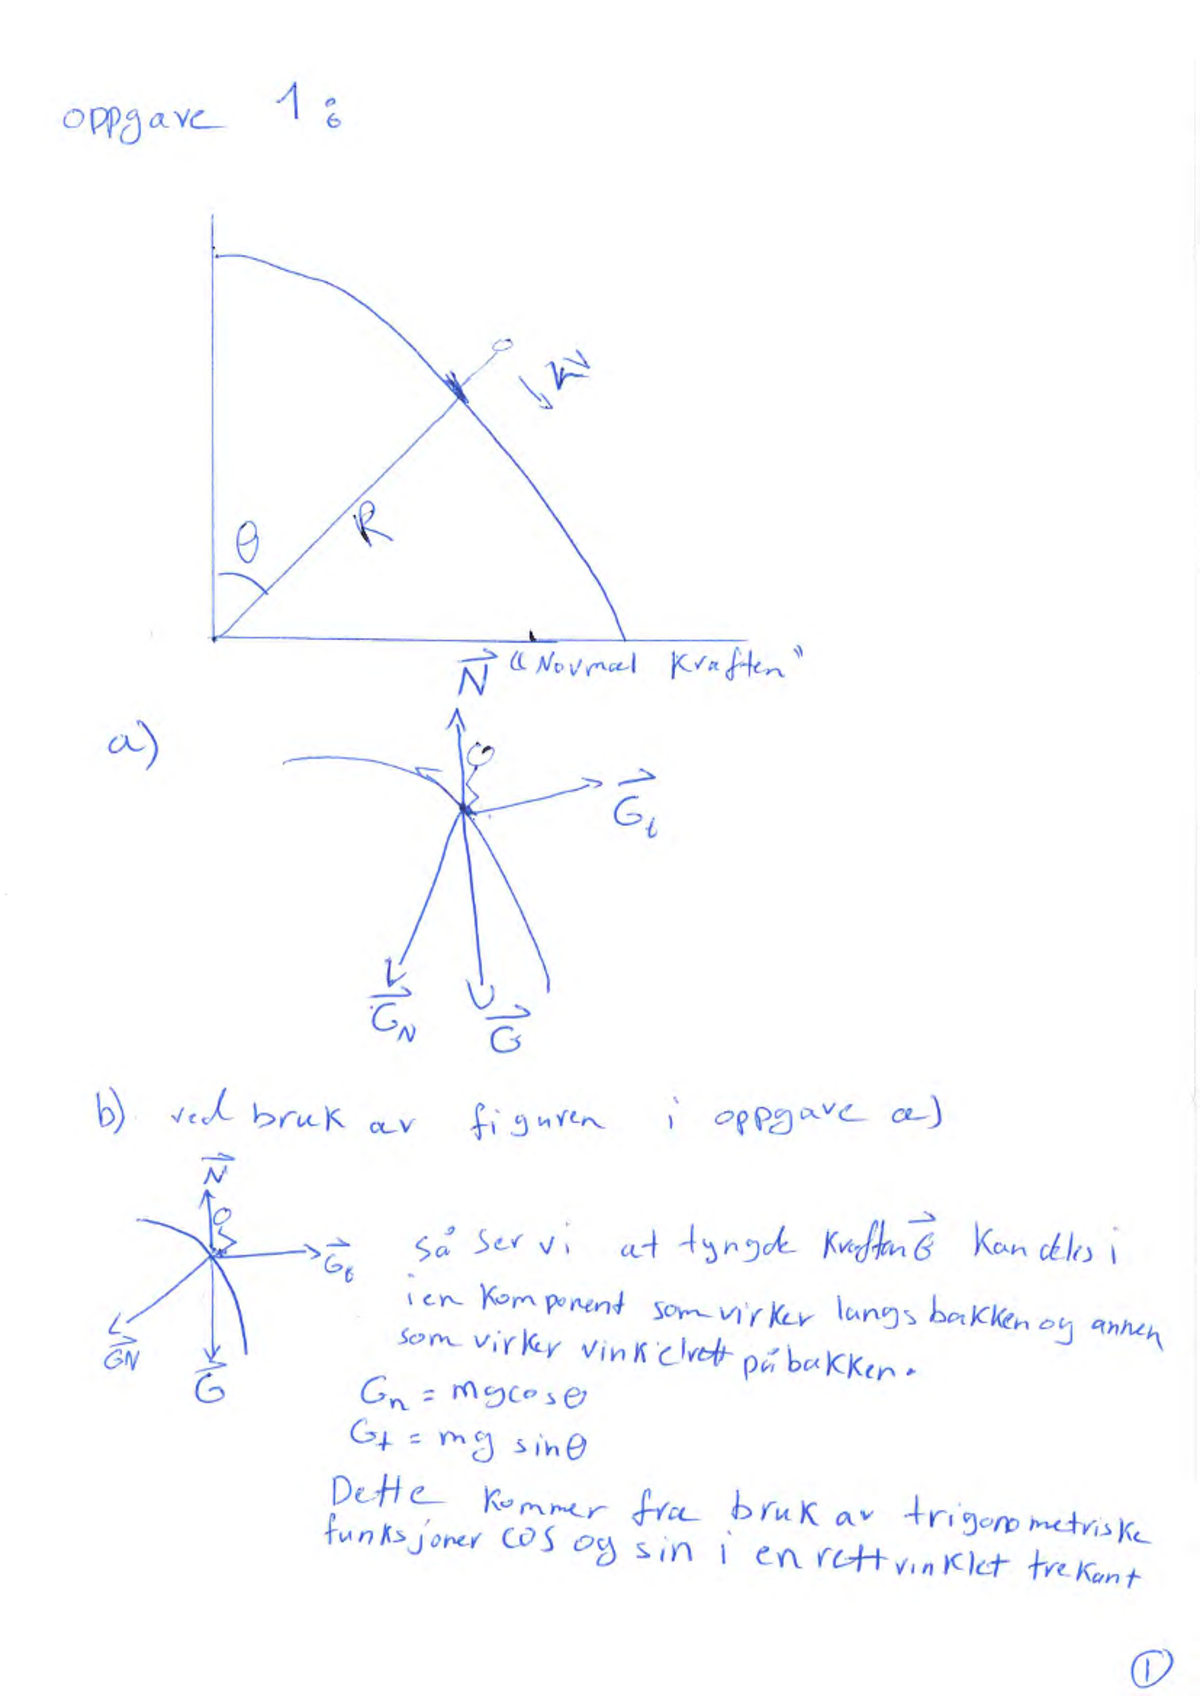 oppgave 1:
v
θ
R
N⃗ "Normal Kraften"
a)
G⃗t
G⃗N
G⃗
b) ved bruk av figuren i oppgave a)
N⃗
G⃗t
G⃗N
G⃗
så ser vi at tyngde kraften G⃗ kan deles i
i en komponent som virker langs bakken og annen
som virker vinkelrett på bakken.
Gn = mg cos θ
Gt = mg sin θ
Dette kommer fra bruk av trigonometriske
funksjoner cos og sin i en rettvinklet trekant
1